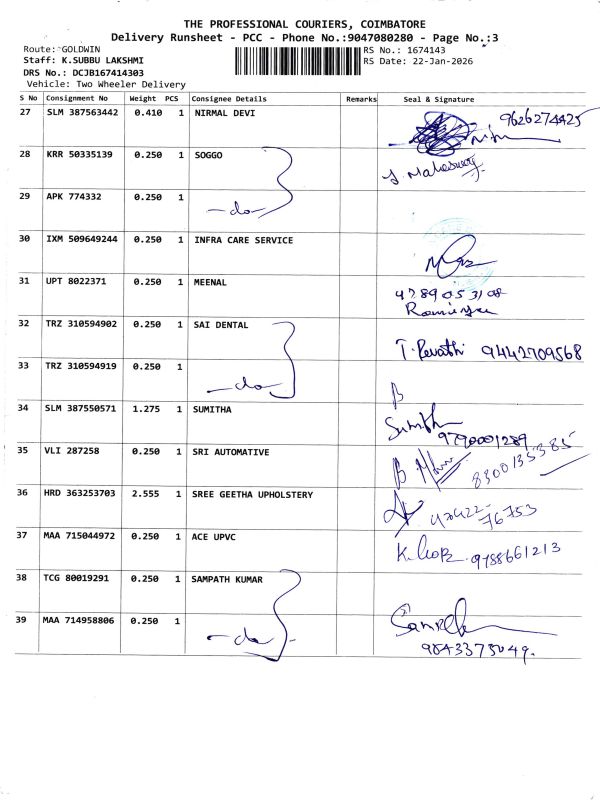 THE PROFESSIONAL COURIERS, COIMBATORE
Delivery Runsheet - PCC - Phone No.:9047080280 - Page No.:3
Route: GOLDWIN
RS No.: 1674143
Staff: K.SUBBU LAKSHMI
RS Date: 22-Jan-2026
DRS No.: DCJB167414303
Vehicle: Two Wheeler Delivery
S No Consignment No Weight PCS Consignee Details Remarks Seal & Signature
27 SLM 387563442 0.410 1 NIRMAL DEVI 9626274425
28 KRR 50335139 0.250 1 SOGGO
29 APK 774332 0.250 1 -do-
30 IXM 509649244 0.250 1 INFRA CARE SERVICE
31 UPT 8022371 0.250 1 MEENAL
32 TRZ 310594902 0.250 1 SAI DENTAL T. Revathi 9442709568
33 TRZ 310594919 0.250 1 -do-
34 SLM 387550571 1.275 1 SUMITHA 9790001289
35 VLI 287258 0.250 1 SRI AUTOMATIVE 8300135385
36 HRD 363253703 2.555 1 SREE GEETHA UPHOLSTERY
37 MAA 715044972 0.250 1 ACE UPVC 9788661213
38 TCG 80019291 0.250 1 SAMPATH KUMAR
39 MAA 714958806 0.250 1 -do-
9843373049.